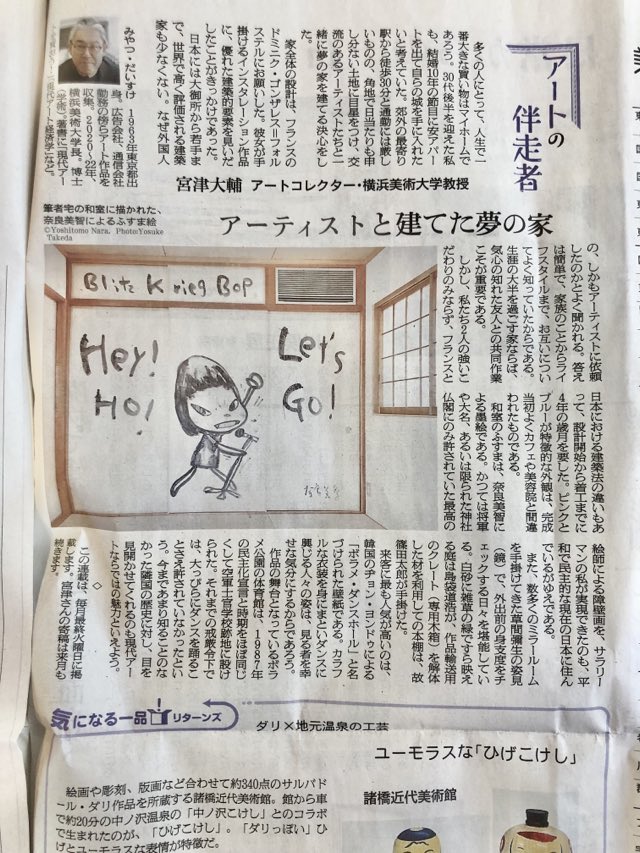 アートの
伴走者
宮津大輔 アートコレクター・横浜美術大学教授
アーティストと建てた夢の家
多くの人にとって、人生で一
番大きな買い物はマイホームで
あろう。30代後半を迎えた私
も、結婚10年の節目に安アパー
トを出て自らの城を手に入れた
いと考えていた。郊外の最寄り
駅から徒歩30分と通勤には厳し
いものの、角地で日当たりも申
し分ない土地に目星をつけ、交
流のあるアーティストたちと一
緒に夢の家を建てる決心をし
た。
家全体の設計は、フランスの
ドミニク・ゴンザレス=フォル
ステルにお願いした。彼女が手
掛けるインスタレーション作品
に、優れた建築的要素を見いだ
したことがきっかけであった。
日本には大御所から若手ま
で、世界で高く評価される建築
家も少なくない。なぜ外国人
みやつ・だいすけ 1963年東京都出
身。広告会社、通信会社
勤務の傍らアート作品を
収集。2020～22年、
横浜美術大学長。博士
(学術)。著書に「現代アー
ト経済学」など。
筆者宅の和室に描かれた、
奈良美智によるふすま絵
©Yoshitomo Nara, Photo:Yosuke
Takeda
Blitz Krieg Bop
Hey!
Ho!
Let's
Go!
の、しかもアーティストに依頼
したのかとよく聞かれる。答え
は簡単で、家族のことからライ
フスタイルまで、お互いについ
てよく知っていたからである。
生涯の大半を過ごす家ならば、
気心の知れた友人との共同作業
こそが重要である。
しかし、私たち2人の強いこ
だわりのみならず、フランスと
日本における建築法の違いもあ
って、設計開始から着工までに
4年の歳月を要した。ピンクと
ブルーが特徴的な外観は、完成
当初よくカフェや美容院と間違
われたものである。
和室のふすまは、奈良美智に
よる墨絵である。かつては将軍
や大名、あるいは限られた神社
仏閣にのみ許されていた最高の
絵師による障壁画を、サラリー
マンの私が実現できたのも、平
和で民主的な現在の日本に住ん
でいるがゆえである。
また、数多くのミラールーム
を手掛けてきた草間彌生の姿見
(鏡)で、外出前の身支度をチ
ェックする日々を堪能してい
る。白砂に雑草の緑ですら映え
る庭は島袋道浩が、作品輸送用
のクレート(専用木箱)を解体
した材を利用しての本棚は、故
篠田太郎が手掛けた。
来客に最も人気が高いのは、
韓国のチョン・ヨンドゥによる
「ボラメ・ダンスホール」と名
づけられた壁紙である。カラフ
ルな衣装を身にまといダンスに
興じる人々の姿は、見る者を幸
せな気分にするからであろう。
作品の舞台となっているボラ
メ公園の体育館は、1987年
の民主化宣言と時期をほぼ同じ
くして空軍士官学校跡地に設け
られた。それまでの戒厳令下で
は、大っぴらにダンスを踊るこ
とさえ許されていなかったとい
う。今まであまり知ることのな
かった隣国の歴史に対し、目を
見開かせてくれるのも現代アー
トならではの魅力といえよう。
◇
この連載は、毎月最終火曜日に掲
載します。宮津さんの寄稿は来月も
続きます。
気になる一品 リターンズ
ダリ×地元温泉の工芸
ユーモラスな「ひげこけし」
諸橋近代美術館
絵画や彫刻、版画など合わせて約340点のサルバド
ール・ダリ作品を所蔵する諸橋近代美術館。館から車
で約20分の中ノ沢温泉の「中ノ沢こけし」とのコラボ
で生まれたのが、「ひげこけし」。「ダリっぽい」ひ
げとユーモラスな表情が特徴だ。